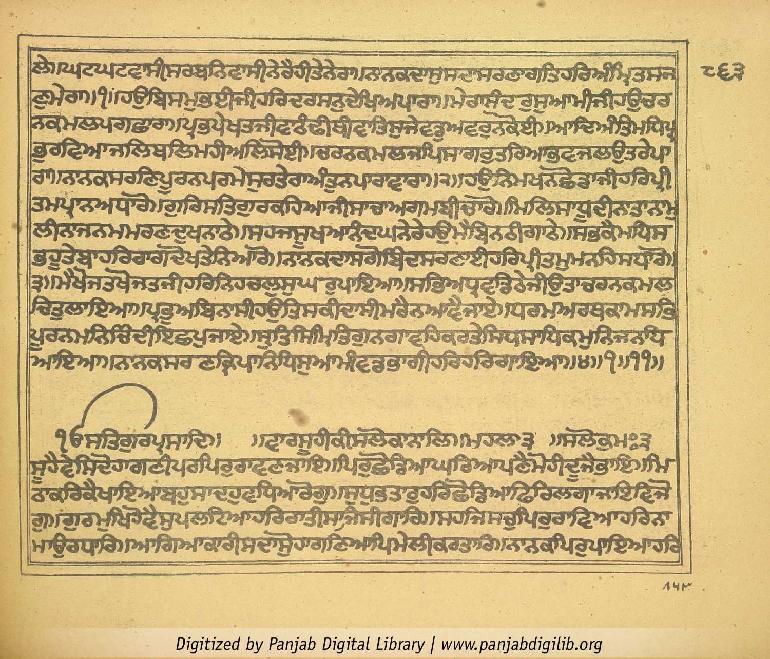 ਲੇ॥ਘਟਘਟਵਾਸੀਸਰਬਨਿਵਾਸੀਨੇਰੈਹੀਤੇਨੇਰਾ॥ਨਾਨਕਦਾਸੁਸਦਾਸਰਣਾਗਤਿਹਰਿਅੰਮ੍ਰਿਤਸਜ
੮੬੩
ਣੁਮੇਰਾ॥੧॥ਹਉਬਿਸਮੁਭਈਜੀਹਰਿਦਰਸਨੁਦੇਖਿਅਪਾਰਾ॥ਮੇਰਾਸੁੰਦਰੁਸੁਆਮੀਜੀਹਉਚਰ
ਨਕਮਲਪਗਛਾਰਾ॥ਪ੍ਰਭਪੇਖਤਜੀਵਾਠੰਢੀਥੀਵਾਤਿਸੁਜੇਵਡੁਅਵਰੁਨਕੋਈ॥ਆਦਿਅੰਤਿਮਧਿਪ੍ਰ
ਭੁਰਵਿਆਜਲਿਥਲਿਮਹੀਅਲਿਸੋਈ॥ਚਰਨਕਮਲਜਪਿਸਾਗਰੁਤਰਿਆਭਵਜਲਉਤਰੇਪਾ
ਰਾ॥ਨਾਨਕਸਰਣਿਪੂਰਨਪਰਮੇਸੁਰਤੇਰਾਅੰਤੁਨਪਾਰਾਵਾਰਾ॥੨॥ਹਉਨਿਮਖਨਛੋਡਾਜੀਹਰਿਪ੍ਰੀ
ਤਮਪ੍ਰਾਨਅਧਾਰੋ॥ਗੁਰਿਸਤਿਗੁਰਕਹਿਆਜੀਸਾਚਾਅਗਮਬੀਚਾਰੋ॥ਮਿਲਿਸਾਧੂਦੀਨਤਾਨਾਮੁ
ਲੀਨਾਜਨਮਮਰਣਦੁਖਨਾਠੇ॥ਸਹਜਸੂਖਆਨੰਦਘਨੇਰੇਹਉਮੈਬਿਨਠੀਗਾਠੇ॥ਸਭਕੈਮਧਿਸ
ਭਹੂਤੇਬਾਹਰਿਰਾਗਦੋਖਤੇਨਿਆਰੋ॥ਨਾਨਕਦਾਸਗੋਬਿੰਦਸਰਣਾਈਹਰਿਪ੍ਰੀਤਮੁਮਨਹਿਸਧਾਰੋ॥
੩॥ਮੈਖੋਜਤਖੋਜਤਜੀਹਰਿਨਿਹਚਲੁਸੁਘਰੁਪਾਇਆ॥ਸਭਿਅਧ੍ਰੁਵਡਿਠੇਜੀਉਤਾਚਰਨਕਮਲ
ਚਿਤੁਲਾਇਆ॥ਪ੍ਰਭੁਅਬਿਨਾਸੀਹਉਤਿਸਕੀਦਾਸੀਮਰੈਨਆਵੈਜਾਏ॥ਧਰਮਅਰਥਕਾਮਸਭਿ
ਪੂਰਨਮਨਿਚਿੰਦੀਇਛਪੁਜਾਏ॥ਸ੍ਰੁਤਿਸਿਮ੍ਰਿਤਿਗੁਨਗਾਵਹਿਕਰਤੇਸਿਧਸਾਧਿਕਮੁਨਿਜਨਧਿ
ਆਇਆ॥ਨਾਨਕਸਰਣਕ੍ਰਿਪਾਨਿਧਿਸੁਆਮੀਵਡਭਾਗੀਹਰਿਹਰਿਗਾਇਆ॥੪॥੧॥੧੧॥
ੴਸਤਿਗੁਰਪ੍ਰਸਾਦਿ॥ ॥ਵਾਰਸੂਹੀਕੀਸਲੋਕਾਨਾਲਿ॥ਮਹਲਾ੩ ॥ਸਲੋਕੁਮਃ੩
ਸੂਹੈਵੇਸਿਦੋਹਾਗਣੀਪਰਪਿਰੁਰਾਵਣਜਾਇ॥ਪਿਰੁਛੋਡਿਆਘਰਿਆਪਣੈਮੋਹੀਦੂਜੈਭਾਇ॥ਮਿ
ਠਾਕਰਿਕੈਖਾਇਆਬਹੁਸਾਦਹੁਵਧਿਆਰੋਗੁ॥ਸੁਧੁਭਤਾਰੁਹਰਿਛੋਡਿਆਫਿਰਿਲਗਾਜਾਇਵਿਜੋ
ਗੁ॥ਗੁਰਮੁਖਿਹੋਵੈਸੁਪਲਟਿਆਹਰਿਰਾਤੀਸਾਜਿਸੀਗਾਰਿ॥ਸਹਜਿਸਚੁਪਿਰੁਰਾਵਿਆਹਰਿਨਾ
ਮਾਉਰਧਾਰਿ॥ਆਗਿਆਕਾਰੀਸਦਾਸੋਹਾਗਣਿਆਪਿਮੇਲੀਕਰਤਾਰਿ॥ਨਾਨਕਪਿਰੁਪਾਇਆਹਰਿ
Digitized by Panjab Digital Library | www.panjabdigilib.org